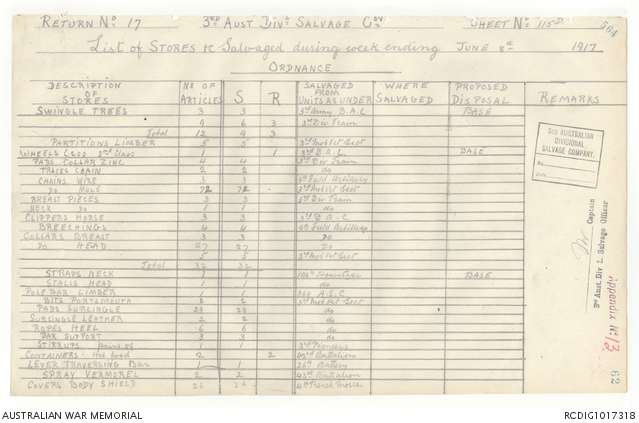 RETURN No 17 3RD AUST DIVn SALVAGE Coy SHEET No 115D 504
List of STORES &c Salvaged during week ending JUNE 8th 1917
ORDNANCE
DESCRIPTION OF STORES No OF ARTICLES S R SALVAGED FROM UNITS AS UNDER WHERE SALVAGED PROPOSED DISPOSAL REMARKS
SWINGLE TREES 3 3 3rd Army B.A.C BASE
9 6 3 3rd Div Train
Total 12 9 3
PARTITIONS LIMBER 5 5 3rd Mob Vet Sect
WHEELS 1 1 BASE
PADS COLLAR ZINC 4 4 3rd Div Train
TRACES CHAIN 2 2 do
CHAINS WIRE 3 3 Field Artillery
Do MULE 72 72 3rd Mob Vet Sect
BREAST PIECES 3 3 3rd Div Train
NECK Do 1 1 do
CLIPPERS HORSE 3 3
BREECHINGS 4 4 Field Artillery
COLLARS BREAST 3 3 Do
Do HEAD 27 27 Do
5 5 3rd Mob Vet Sect
Total 32 32
STRAPS NECK 1 1 BASE
STALLS HEAD 1 1 do
POLE BAR LIMBER 1 1 A.S.C
BITS PORTSMOUTH 2 2 3rd Mob Vet Sect
PADS SURCINGLE 23 23 do
SURCINGLE LEATHER 2 2 do
ROPES HEEL 6 6 do
BAR SUPPORT 3 3 do
STIRRUPS pairs of 1 1 3rd Pioneers
CONTAINERS Hot food 2 2 Battalion
LEVER TRAVERSING BAR 1 1 Battery
SPRAY VERMOREL 2 2 Battalion
COVERS BODY SHIELD 22 22 Trench Mortar
3RD AUSTRALIAN
DIVISIONAL
SALVAGE COMPANY.
No.
Date
Captain
3rd Aust. Div l. Salvage Officer
Appendix No 13
62
AUSTRALIAN WAR MEMORIAL
RCDIG1017318